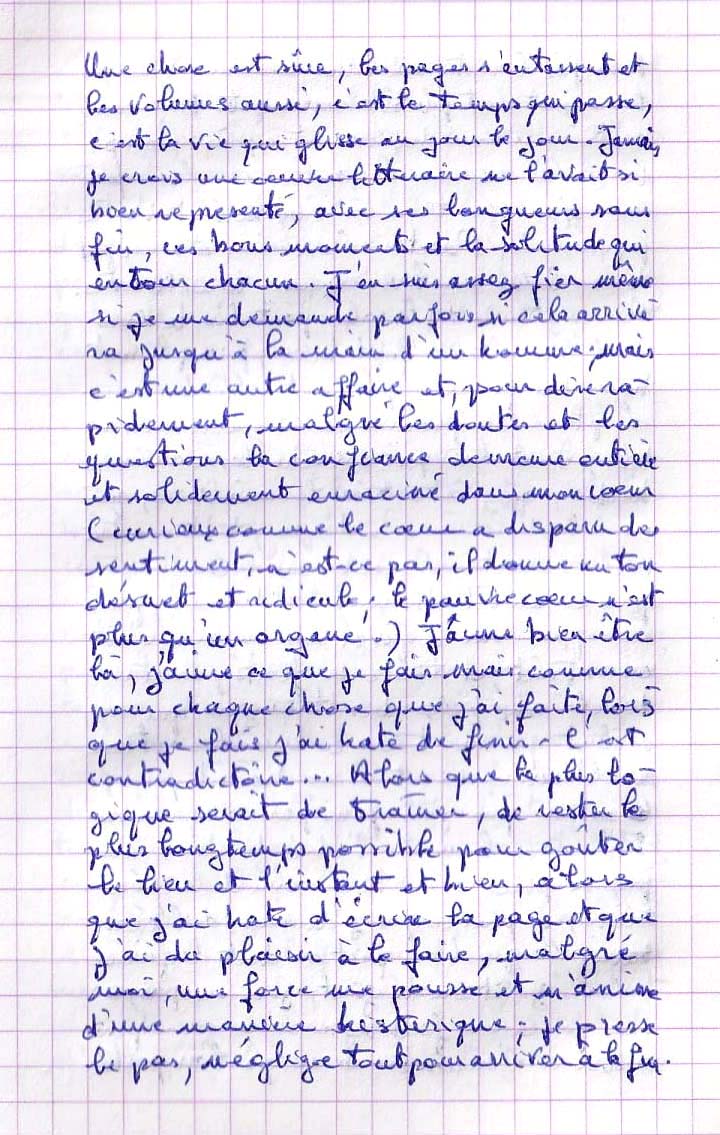 Une chose est sûre, les pages s'entassent et
les volumes aussi, c'est le temps qui passe,
c'est la vie qui glisse au jour le jour. Jamais,
je crois une oeuvre littéraire ne l'avait si
bien représenté, avec ses longueurs sans
fin, ces bons moments et la solitude qui
entour chacun. J'en suis assez fier même
si je me demande parfois si cela arrive-
ra jusqu'à la main d'un homme; mais
c'est une autre affaire et, pour dire ra-
pidement, malgré les doutes et les
questions la confiance demeure entière
et solidement enraciné dans mon coeur
(curieux comme le coeur a disparu des
sentiment, n'est-ce pas, il donne un ton
désuet et ridicule; le pauvre coeur n'est
plus qu'un organe.) J'aime bien être
là, j'aime ce que je fais mais comme
pour chaque chose que j'ai faite, lors-
que je fais j'ai hate de finir. C'est
contradictoire... Alors que le plus lo-
gique serait de trainer, de rester le
plus longtemps possible pour goûter
le lieu et l'instant et bien, alors
que j'ai hate d'écrire la page et que
j'ai du plaisir à le faire, malgré
moi, une force me pousse et m'anime
d'une manière histerique; je presse
le pas, néglige tout pour arriver à la fin.